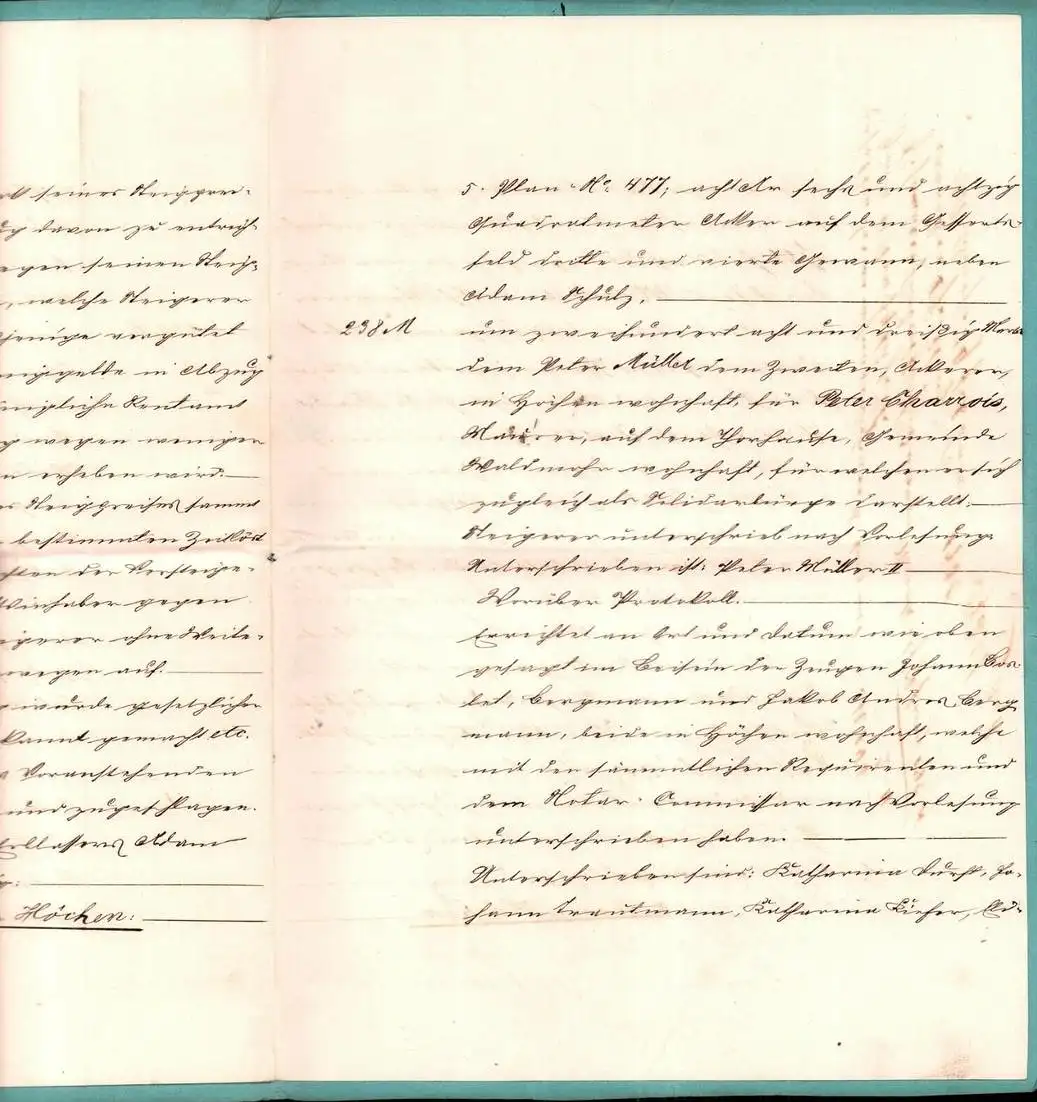 seines Steigprei-
davon zu entrich-
gegen seinen Steig-
, welche Steigerer
jenige vergütet
steiggelde in Abzug
königliche Rentamt
wegen weniger
n erheben wird.
Steigpreises sammt
bestimmten Zeitkost
der Versteige-
inhaber gegen
eigerer ohne Weite-
wegen auf.
wurde gesetzlicher
kannt gemacht etc.
Voranstehenden
und zugeschlagen.
Erblassers Adam
Höchen:
5. Plan-No: 477; acht Ar sechs und achtzig
Quadratmeter Acker auf dem Gesserts-
feld dritte und vierte Gewann, neben
Adam Schulz,
238 M
um zweihundert acht und dreißig Mark
dem Peter Müller dem Zweiten, Ackerer,
in Höchen wohnhaft, für Peter Charrois,
Maurer, auf dem Thorhause, Gemeinde
Waldmohr wohnhaft, für welchen er sich
zugleich als Solidarbürge darstellt.
Steigerer unterschrieb nach Vorlesung.
Unterschrieben ist: Peter Müller II
Worüber Protokoll.
Errichtet an Ort und Datum wie oben
gesagt im Beisein der Zeugen Johann Bos-
let, Bergmann und Jakob Andres Berg
mann, beide in Höchen wohnhaft, welche
mit den sämmtlichen Requirenten und
dem Notar-Commissär nach Vorlesung
unterschrieben haben.
Unterschrieben sind: Katharina Durst, Jo-
hann Trautmann, Katharina Kiefer,